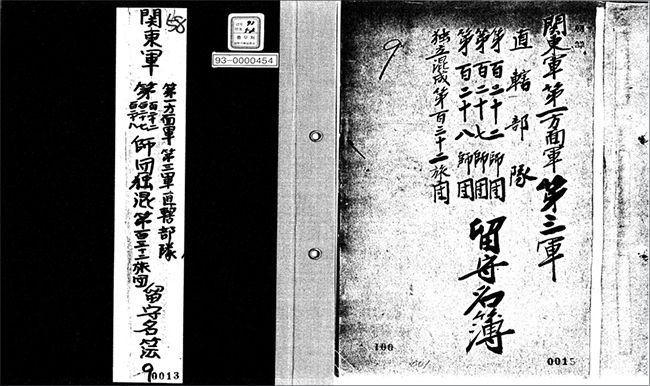 58
関東軍
第一方面軍第三軍直轄部隊
第
百二十二
百二十七
百二十八
師団独混第百三十二旅団
留守名簿
9
0013
93-0000454
関東軍第一方面軍第三軍
直轄部隊
第百二十二師団
第百二十七師団
第百二十八師団
独立混成第百三十二旅団
留守名簿
9
100
0015